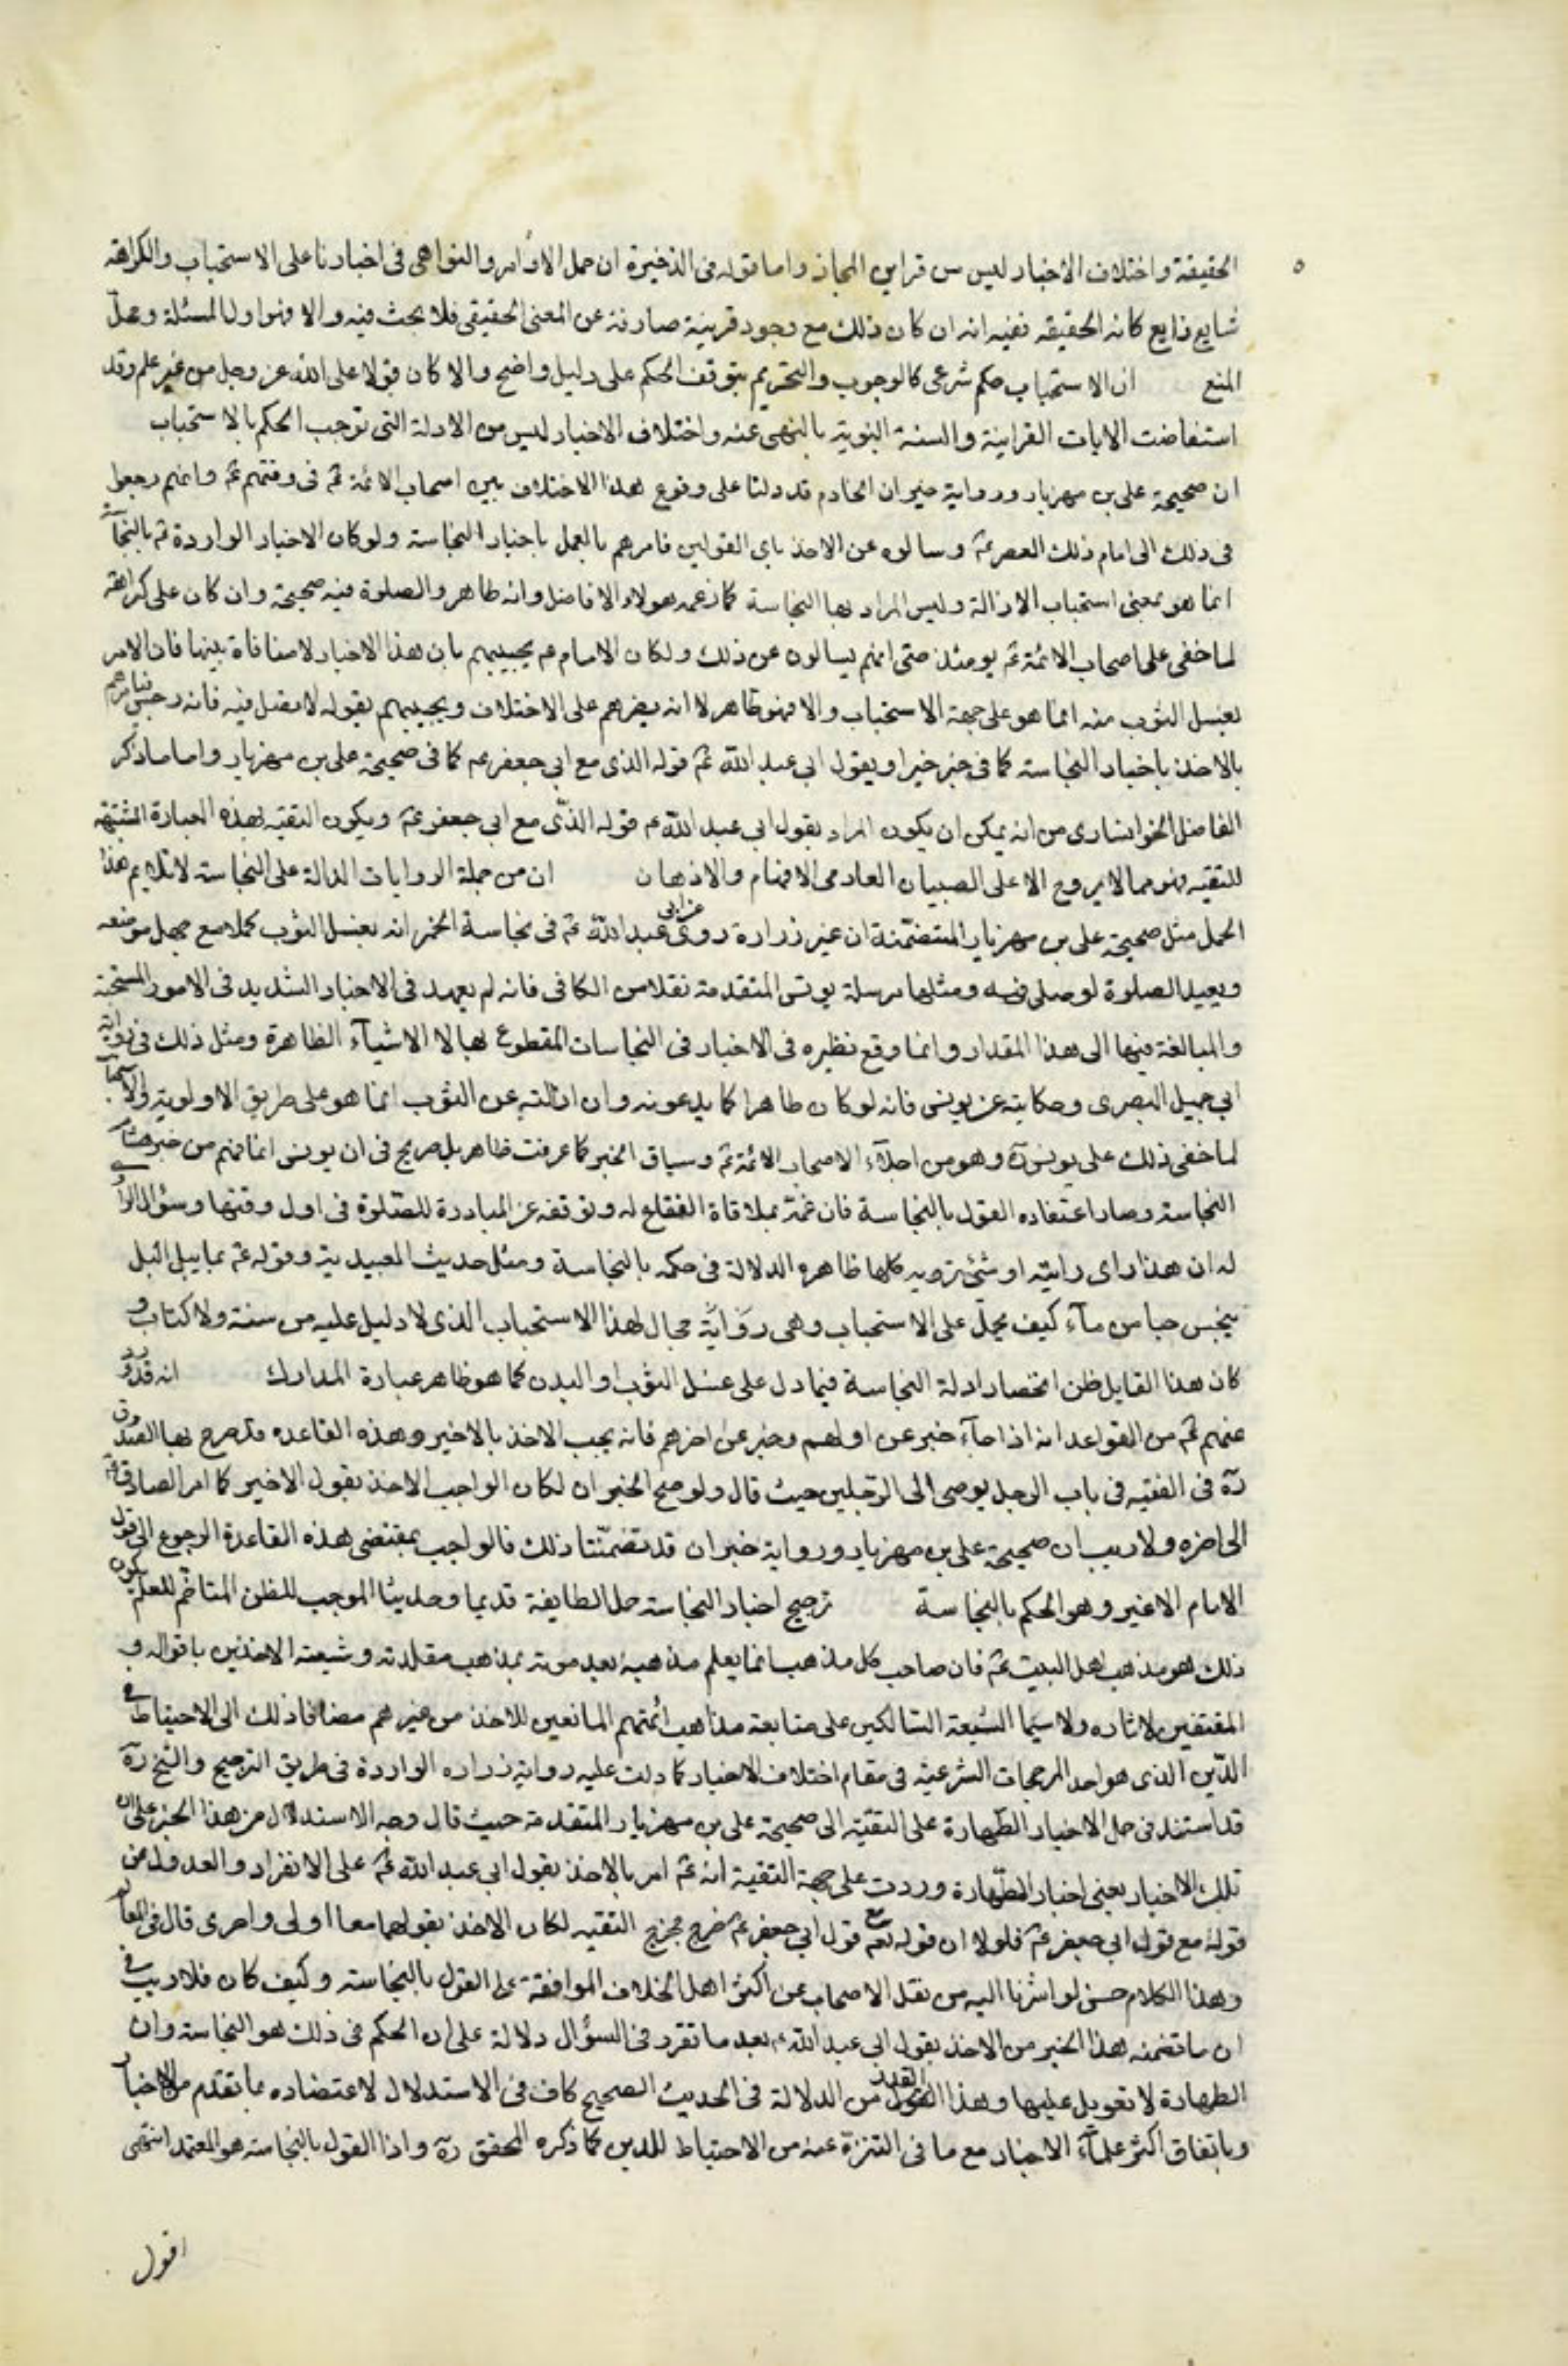 الحقيقة واختلاف الأخبار ليس من قراين المجاز واما قوله فى الذخيرة ان حمل الاوامر والنواهى فى اخبارنا على الاستحباب والكراهة
شايع ذايع كانه الحقيقه ففيه انه ان كان ذلك مع وجود قرينة صارفة عن المعنى الحقيقى فلا بحث فيه والا فهو اول المسئلة ومحل
المنع ان الاستحباب حكم شرعى كالوجوب والتحريم يتوقف الحكم على دليل واضح والا كان قولا على الله عز وجل من غير علم وقد
استفاضت الايات القرانية والسنة النبوية بالنهى عنه واختلاف الاخبار ليس من الادلة التى توجب الحكم بالاستحباب
ان صحيحة على بن مهزيار ورواية خيران الخادم قد دلتا على وقوع هذا الاختلاف بين اصحاب الائمة عم فى وقتهم عم وانهم رجعوا
فى ذلك الى امام ذلك العصر عم وسالوه عن الاخذ باى القولين فامرهم بالعمل باخبار النجاسة ولو كان الاخبار الواردة ثم بالنجاسة
انما هو بمعنى استحباب الازالة وليس المراد بها النجاسة كما زعمه هولاء الافاضل وانه طاهر والصلوة فيه صحيحة وان كان على كراهة
لما خفى على اصحاب الائمة عم يومئذ حتى انهم يسالون عن ذلك ولكان الامام عم يجيبهم بان هذا الاخبار لا منافاة بينها فان الامر
بغسل الثوب منه انما هو على جهة الاستحباب والا فهو طاهر لا انه يقرهم على الاختلاف ويجيبهم بقوله لا تصل فيه فانه رجس فيامرهم
بالاخذ باخبار النجاسة كما فى خبر خيران ويقول ابى عبد الله عم قوله الذى مع ابى جعفر عم كما فى صحيحة على بن مهزيار واما ما ذكر
الفاضل الخوانسارى من انه يمكن ان يكون المراد بقول ابى عبد الله عم قوله الذى مع ابى جعفر عم ويكون التقيه بهذه العبارة المشتبهة
للتقيه فهو مما لا يروج الا على الصبيان العادمى الافهام والاذهان ان من جملة الروايات الدالة على النجاسة لا تلايم هذا
الحمل مثل صحيحة على بن مهزيار المتضمنة ان غير زرارة روى عن ابى عبد الله عم فى نجاسة الخمر انه يغسل الثوب كملا مع جهل موضعه
ويعيد الصلوة لو صلى فيه ومثلها مرسلة يونس المتقدمة نقلا من الكافى فانه لم يعهد فى الاخبار التشديد فى الامور المستحبة
والمبالغة فيها الى هذا المقدار وانما وقع نظيره فى الاخبار فى النجاسات المقطوع بها لا الاشيآء الطاهرة ومثل ذلك فى رواية
ابى جميل البصرى وحكايته عن يونس فانه لو كان طاهرا كما يدعونه وان ازالته عن الثوب انما هو على طريق الاولوية والاستحباب
لما خفى ذلك على يونس رة وهو من اجلاء الاصحاب الائمة عم وسياق الخبر كما عرفت ظاهر بل صريح فى ان يونس انما فهم من خبر هشام
النجاسة وصار اعتقاده القول بالنجاسة فان غمه بملاقاة الفقاع له وتوقفه عن المبادرة للصلوة فى اول وقتها وسؤال الراوى
له ان هذا راى رايته او شئ ترويه كلها ظاهره الدلالة فى حكمه بالنجاسة ومثل حديث العبيديه وقوله عم ما يبل الميل
ينجس حبا من مآء كيف يحمل على الاستحباب وهى رواية مجال لهذا الاستحباب الذى لا دليل عليه من سنة ولا كتاب و
كان هذا القايل ظن انحصار ادلة النجاسة فيما دل على غسل الثوب او البدن كما هو ظاهر عبارة المدارك انه قد ورد
عنهم عم من القواعد انه اذا جآء خبر عن اولهم وخبر عن اخرهم فانه يجب الاخذ بالاخير وهذه القاعده قد صرح بها الصدوق
رة فى الفقيه فى باب الرجل يوصى الى الرجلين حيث قال ولو صح الخبران لكان الواجب الاخذ بقول الاخير كما امر الصادق عم
الى اخره ولا ريب ان صحيحة على بن مهزيار ورواية خيران قد تضمنتا ذلك فالواجب بمقتضى هذه القاعدة الرجوع الى قول
الامام الاخير وهو الحكم بالنجاسة ترجيح اخبار النجاسة حمل الطايفة قديما وحديثا الموجب للظن المتاخم للعلم بكون
ذلك هو مذهب اهل البيت عم فان صاحب كل مذهب انما يعلم مذهبه بعد موته بمذهب مقلدته وشيعته الاخذين باقواله و
المقتفين لاثاره ولا سيما الشيعة السالكين على متابعة مذاهب ائمتهم المانعين للاخذ من غيرهم مضافا ذلك الى الاحتياط فى
الدين الذى هو احد المرجحات الشرعية فى مقام اختلاف الاخبار كما دلت عليه رواية زراره الواردة فى طريق الترجيح والشيخ رة
قد استند فى حمل الاخبار الطهارة على التقية الى صحيحة على بن مهزيار المتقدمة حيث قال وجه الاستدلال من هذا الخبر على ان
تلك الاخبار يعنى اخبار الطهارة وردت على جهة التقية انه عم امر بالاخذ بقول ابى عبد الله عم على الانفراد والعدول من
قوله مع قول ابى جعفر عم فلولا ان قوله مع قول ابى جعفر عم خرج مخرج التقيه لكان الاخذ بقولهما معا اولى واحرى قال فى المعالم
وهذا الكلام حسن لو اشرنا اليه من نقل الاصحاب عن اكثر اهل الخلاف الموافقة على القول بالنجاسة وكيف كان فلا ريب فى
ان ما تضمنه هذا الخبر من الاخذ بقول ابى عبد الله عم بعد ما تقرر فى السؤال دلالة على ان الحكم فى ذلك هو النجاسة وان
الطهارة لا تعويل عليها وهذا القدر من الدلالة فى الحديث الصحيح كاف فى الاستدلال لاعتضاده بما تقدم من الاخبار
وباتفاق اكثر علمآء الاخبار مع ما فى التنزه عنه من الاحتياط للدين كما ذكره المحقق رة واذا القول بالنجاسة هو المعتمد انتهى
اقول